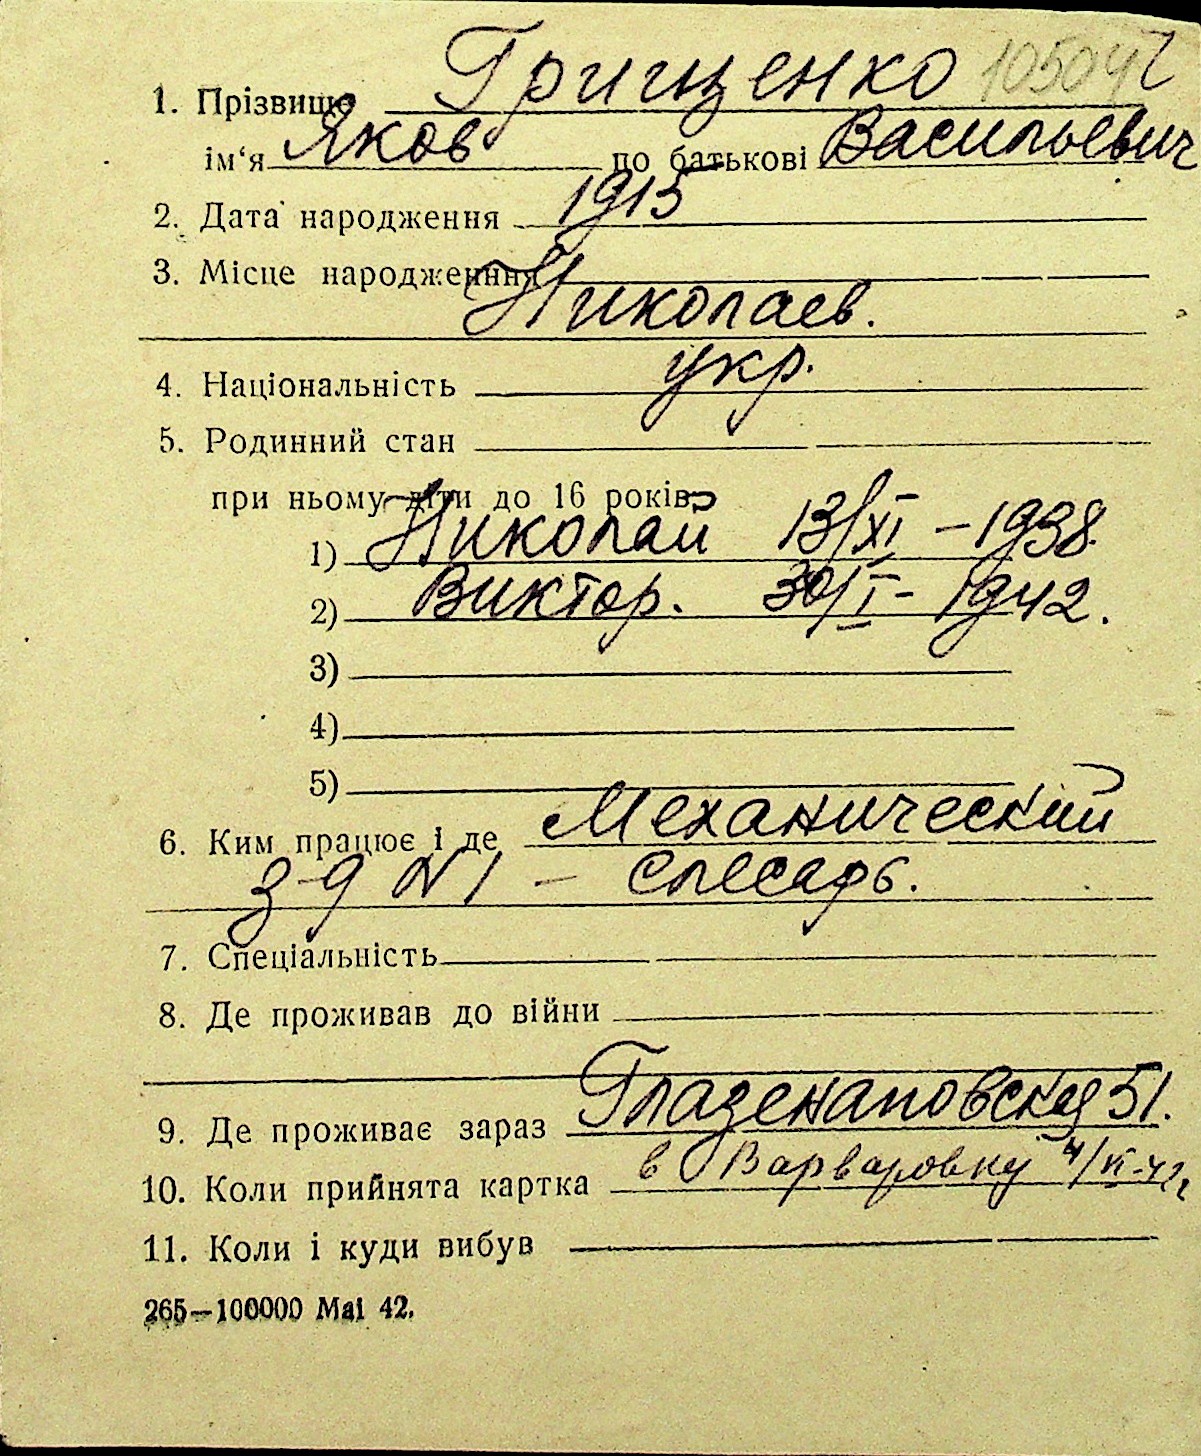 1. Прізвище Грищенко
ім‘я Яков по батькові Васильевич
2. Дата народження 1915
3. Місце народженння
Николаев.
4. Національність укр.
5. Родинний стан
при ньому діти до 16 років:
1) Николай 13/XI – 1938.
2) Виктор. 30/I - 1942.
3)
4)
5)
6. Ким працює і де Механический
з-д N1 – слесарь.
7. Спеціальність
8. Де проживав до війни
9. Де проживає зараз Глазенаповская 51.
10. Коли прийнята картка в Варваровку 4/VI-42г
11. Коли і куди вибув
265—100000 Mai 42.